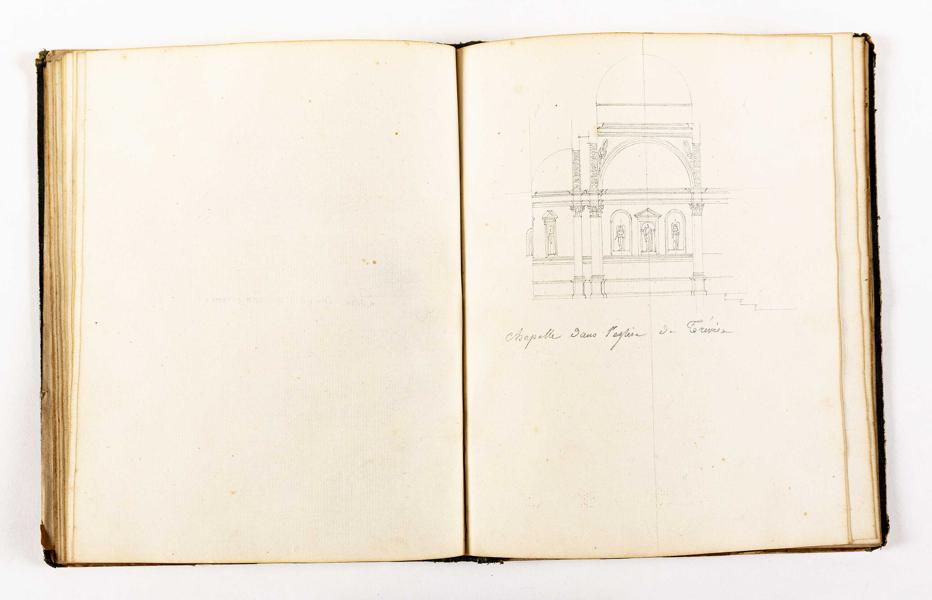 Chapelle dans l'eglise de Trévise